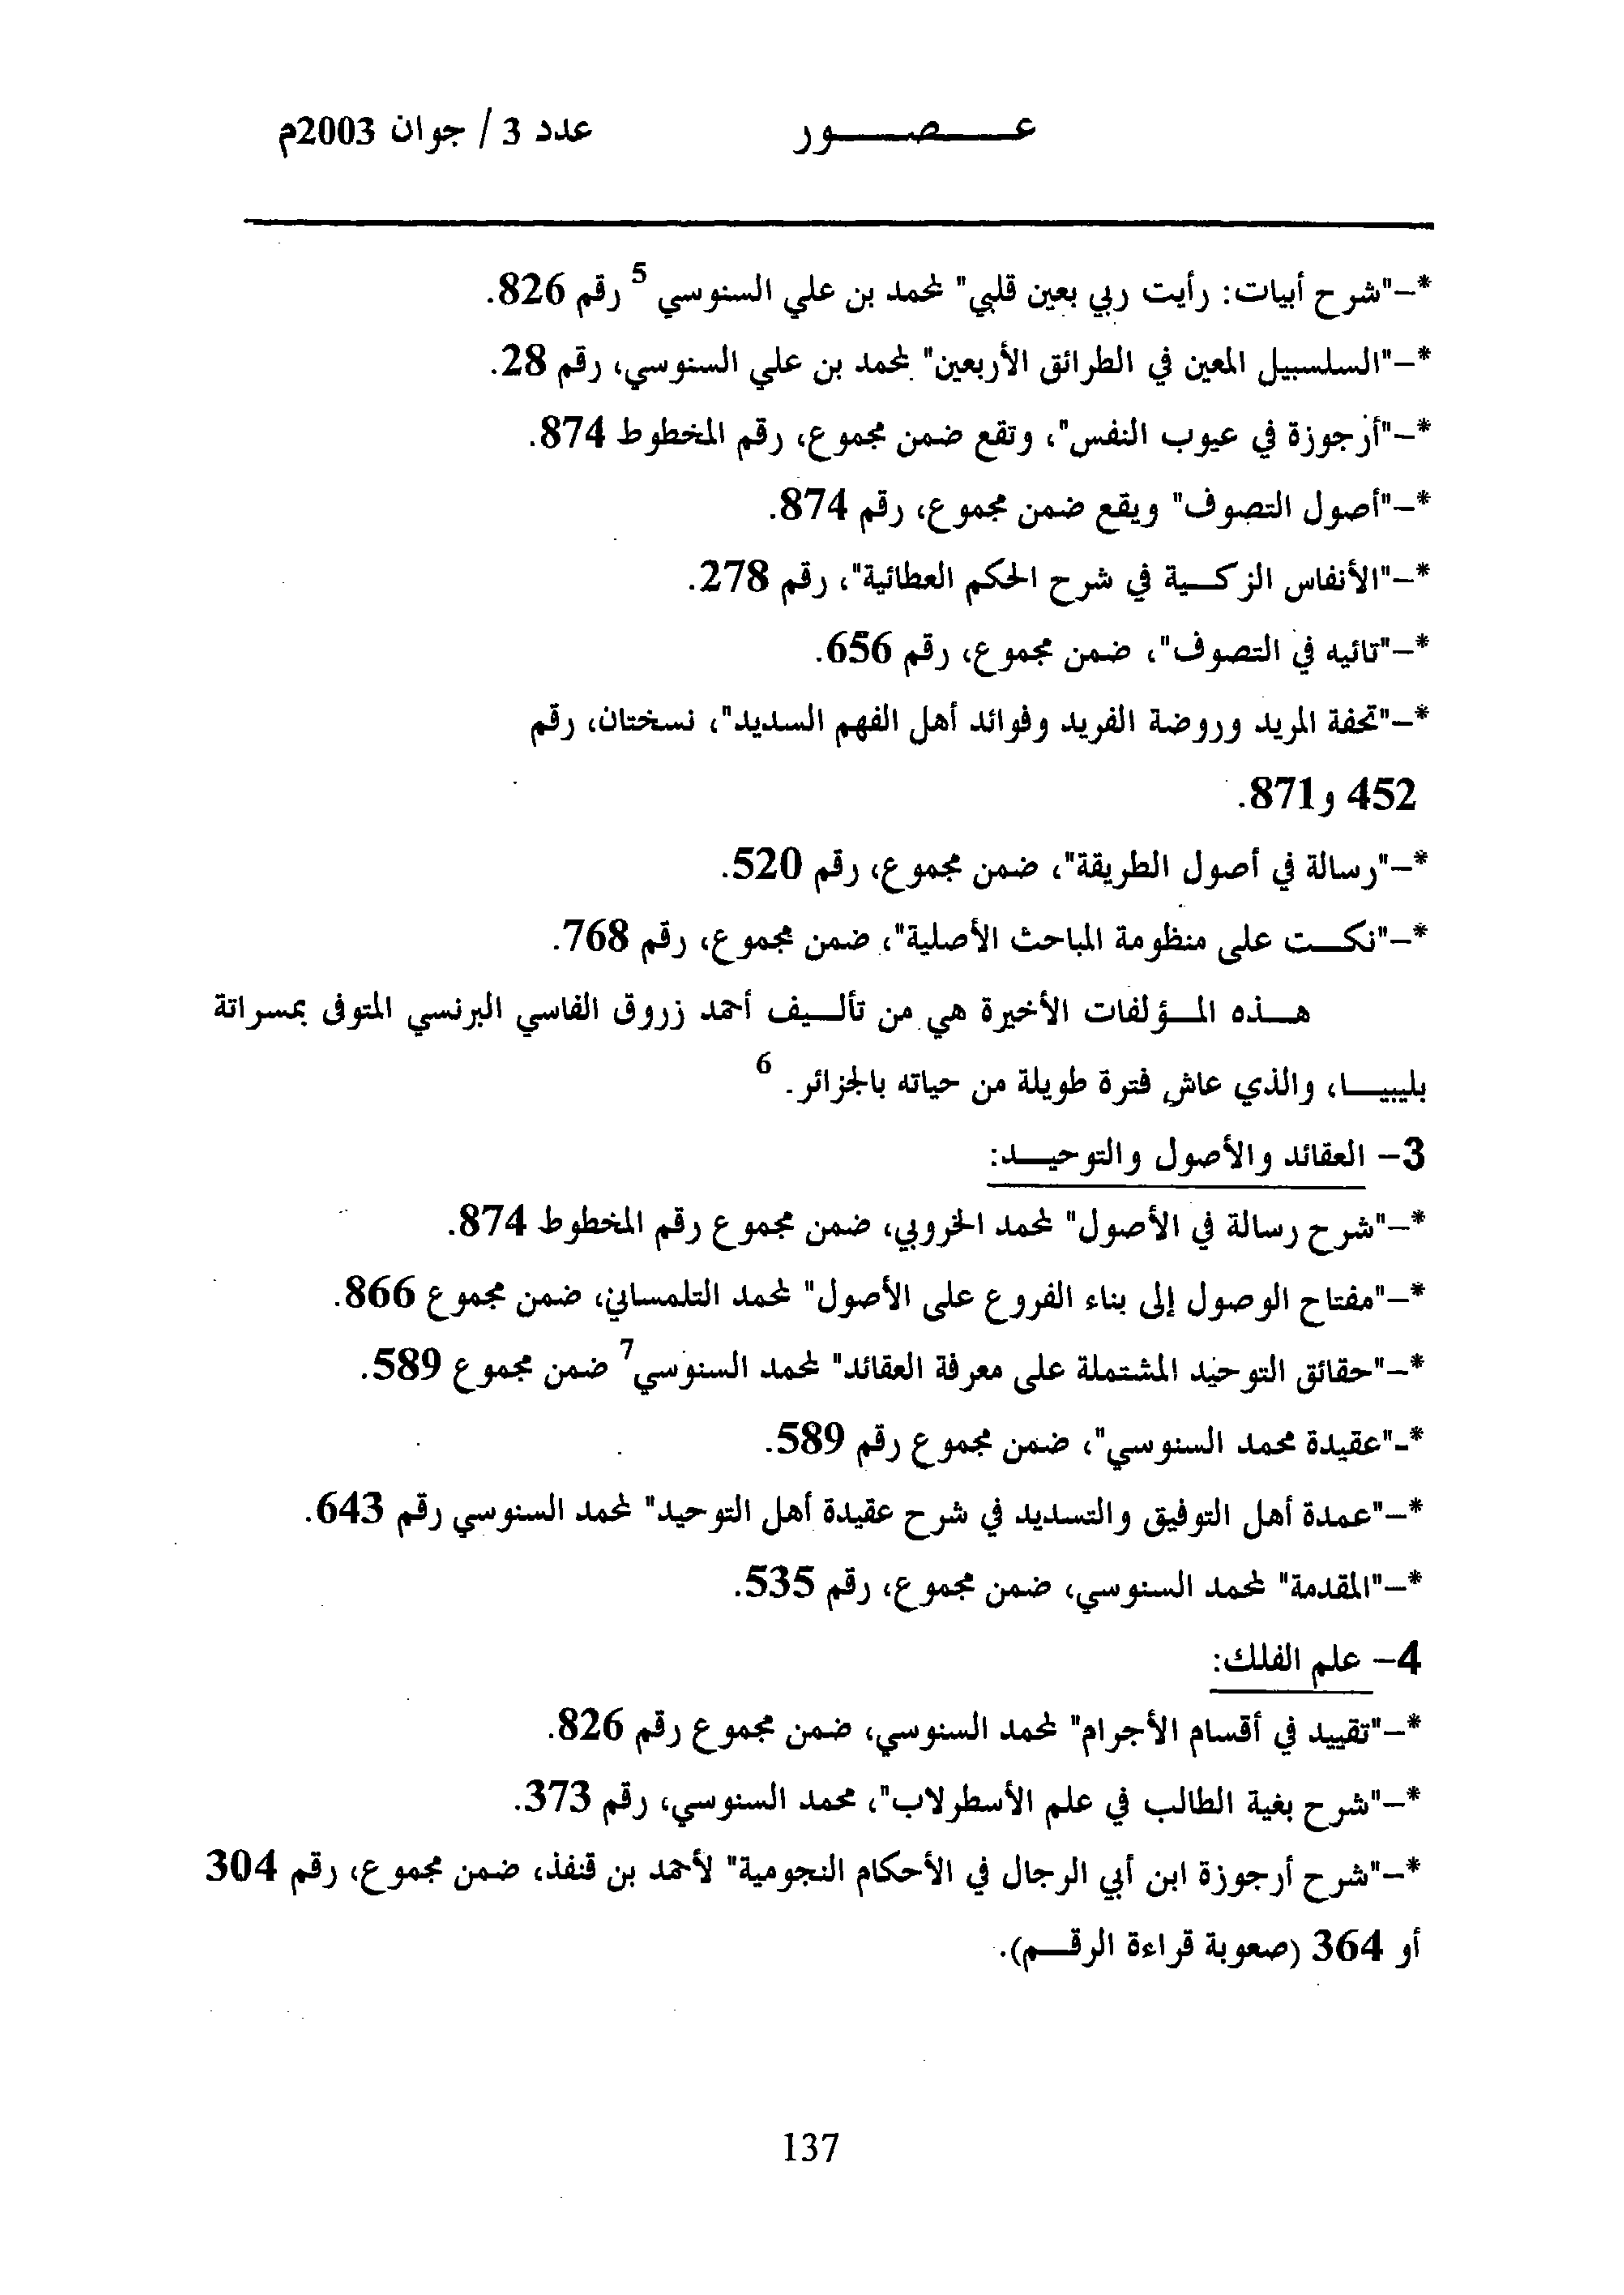 عصور عدد 3 / جوان 2003م
*-"شرح أبيات: رأيت ربي بعين قلبي" لمحمد بن علي السنوسي 5 رقم 826.
*-"السلسبيل المعين في الطرائق الأربعين" لمحمد بن علي السنوسي، رقم 28.
*-"أرجوزة في عيوب النفس"، وتقع ضمن مجموع، رقم المخطوط 874.
*-"أصول التصوف" ويقع ضمن مجموع، رقم 874.
*-"الأنفاس الزكية في شرح الحكم العطائية"، رقم 278.
*-"تائيه في التصوف"، ضمن مجموع، رقم 656.
*-"تحفة المريد وروضة الفريد وفوائد أهل الفهم السديد"، نسختان، رقم
452 و871.
*-"رسالة في أصول الطريقة"، ضمن مجموع، رقم 520.
*-"نكت على منظومة المباحث الأصلية"، ضمن مجموع، رقم 768.
هذه المؤلفات الأخيرة هي من تأليف أحمد زروق الفاسي البرنسي المتوفى بمسراتة
بليبيا، والذي عاش فترة طويلة من حياته بالجزائر. 6
3- العقائد والأصول والتوحيد:
*-"شرح رسالة في الأصول" لمحمد الخروبي، ضمن مجموع رقم المخطوط 874.
*-"مفتاح الوصول إلى بناء الفروع على الأصول" لمحمد التلمساني، ضمن مجموع 866.
*-"حقائق التوحيد المشتملة على معرفة العقائد" لمحمد السنوسي7 ضمن مجموع 589.
*-"عقيدة محمد السنوسي"، ضمن مجموع رقم 589.
*-"عمدة أهل التوفيق والتسديد في شرح عقيدة أهل التوحيد" لمحمد السنوسي رقم 643.
*-"المقدمة" لمحمد السنوسي، ضمن مجموع، رقم 535.
4- علم الفلك:
*-"تقييد في أقسام الأجرام" لمحمد السنوسي، ضمن مجموع رقم 826.
*-"شرح بغية الطالب في علم الأسطرلاب"، محمد السنوسي، رقم 373.
*-"شرح أرجوزة ابن أبي الرجال في الأحكام النجومية" لأحمد بن قنفذ، ضمن مجموع، رقم 304
أو 364 (صعوبة قراءة الرقم).
137